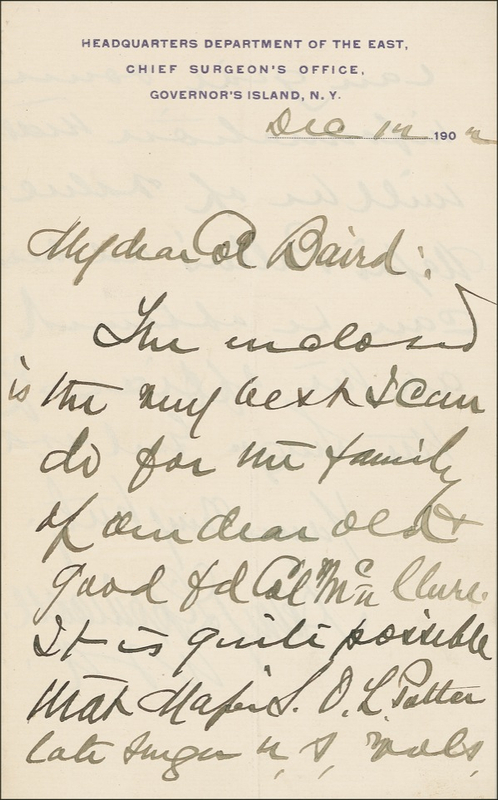 HEADQUARTERS DEPARTMENT OF THE EAST,
CHIEF SURGEON'S OFFICE,
GOVERNOR'S ISLAND, N. Y.
Dec 12 1902
My dear Col Baird:
The enclosed
is the very best I can
do for the family
of our dear old &
good fd Col McClure.
It is quite possible
that Major S. O. L. Potter
late surgeon U, S, Vols,